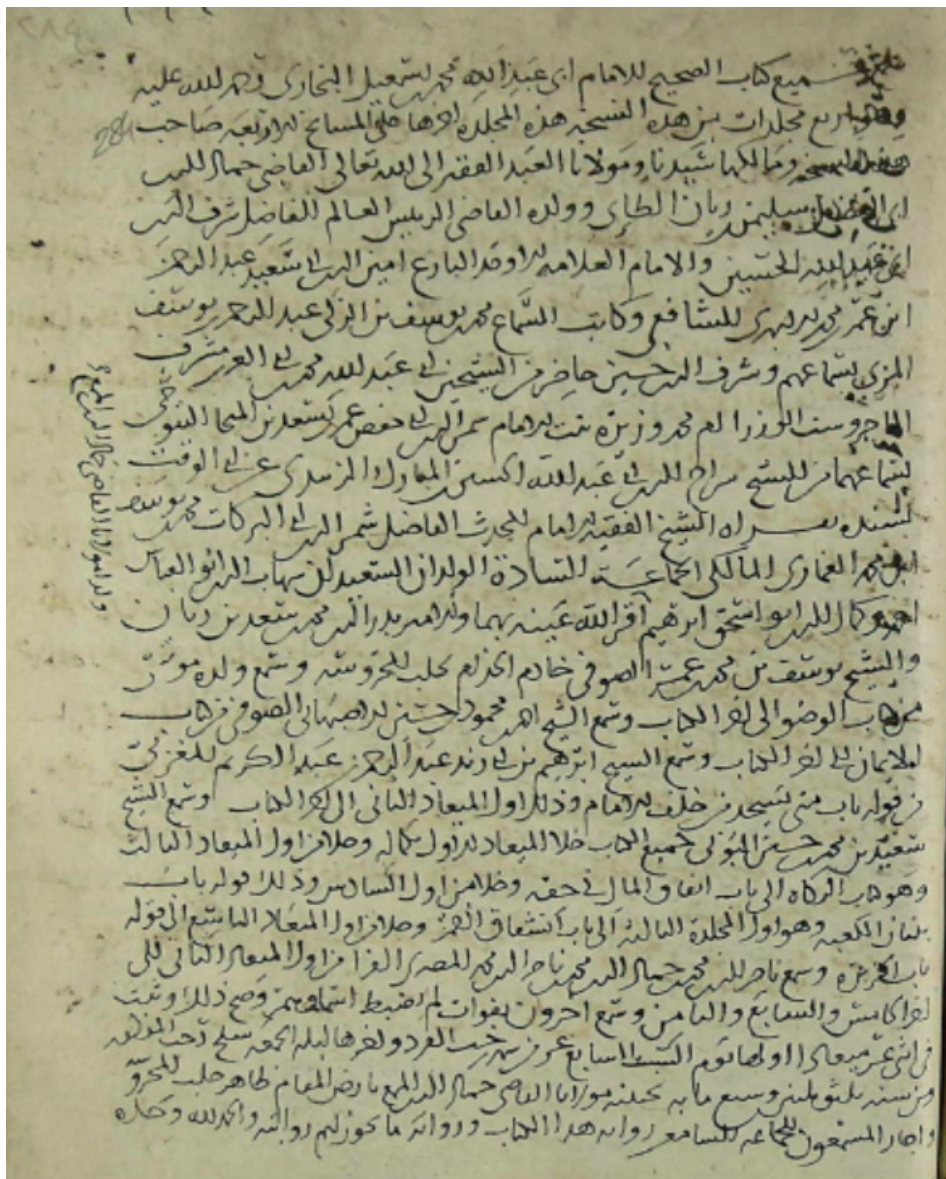 جميع كتاب الصحيح للامام ابى عبد الله محمد بن اسمعيل البخارى رحمه الله عليه
اربع مجلدات من هذه النسخة هذه المجلدة اخرها على المشايخ الاربعة صاحب
ومالكها سيدنا ومولانا العبد الفقير الى الله تعالى القاضى جمال الدين
سليمن بن ريان الطاى وولده القاضى الرييس العالم الفاضل شرف الدين
ابى عبد الله الحسين والامام العلامه الاوحد البارع امين الدين ابى سعيد عبد الرحمن
ابن عمر بن محمد الابهرى الشافعى وكاتب السماع محمد بن يوسف بن الزكى عبد الرحمن بن يوسف
المزى بسماعهم وشرف الدين حسين حاضر من الشيخين ابى عبد الله محمد بن ابى العز بن مشرف
التاجر وست الوزرا ام محمد وزيرة بنت الامام شمس الدين ابى حفص عمر بن اسعد بن المنجا التنوخى
بسماعهما من الشيخ سراج الدين ابى عبد الله الحسين بن المبارك الزبيدى عن ابى الوقت
بسنده بقراه الشيخ الفقيه الامام المحدث الفاضل شمس الدين ابى البركات محمد بن يوسف
ابن محمد الغمارى المالكى الجماعة السادة الولدان السعيدان شهاب الدين ابو العباس
احمد وكمال الدين ابو اسحق ابرهيم اقر الله عينه بهما وابن بدر الدين محمد بن سعد بن ريان
والشيخ يوسف بن محمد الصوفى خادم الخدام بحلب المحروسة وسمع ولده
من كتاب الوضو الى اخر الكتاب وسمع الشيخ محمود بن حسين الاصبهانى الصوفى من كتاب
الايمان الى اخر الكتاب وسمع الشيخ ابرهيم بن عبد الرحمن بن عبد الكريم
من قوله باب متى يسجد من خلف الامام وذلك اول الميعاد الثانى الى اخر الكتاب وسمع الشيخ
سعيد بن محمد بن حسن جميع الكتاب خلا الميعاد الاول بكماله وخلا من اول الميعاد الثالث
وهو كتاب الزكاه الى باب انفاق المال فى حقه وخلا من اول السادس وذلك قوله باب
بنيان الكعبه وهو اول المجلدة الثالثة الى باب انشقاق القمر وخلا من اول الميعاد التاسع الى قوله
باب الخزيرة وسمع ناصر الدين محمد بن جمال الدين محمد بن ناصر الدين محمد المصرى من اول الميعاد الثانى الى
اخر الخامس والسابع والثامن وسمع اخرون بفوات لم اضبط اسماوهم وصح ذلك وثبت
فى اثنى عشر ميعادا اولها يوم السبت السابع عشر من شهر رجب الفرد واخرها ليلة الجمعه سلخ رجب المذكور
من سنه ثلث وثلثين وسبع مايه بحلب مولانا القاضى جمال الدين بارض المقام ظاهر حلب المحروسة
واجاز المسمعون للجماعه السامعين رواية هذا الكتاب ورواية ما يجوز لهم روايته والحمد لله وحده
ولد لمولانا القاضى جمال الدين
284